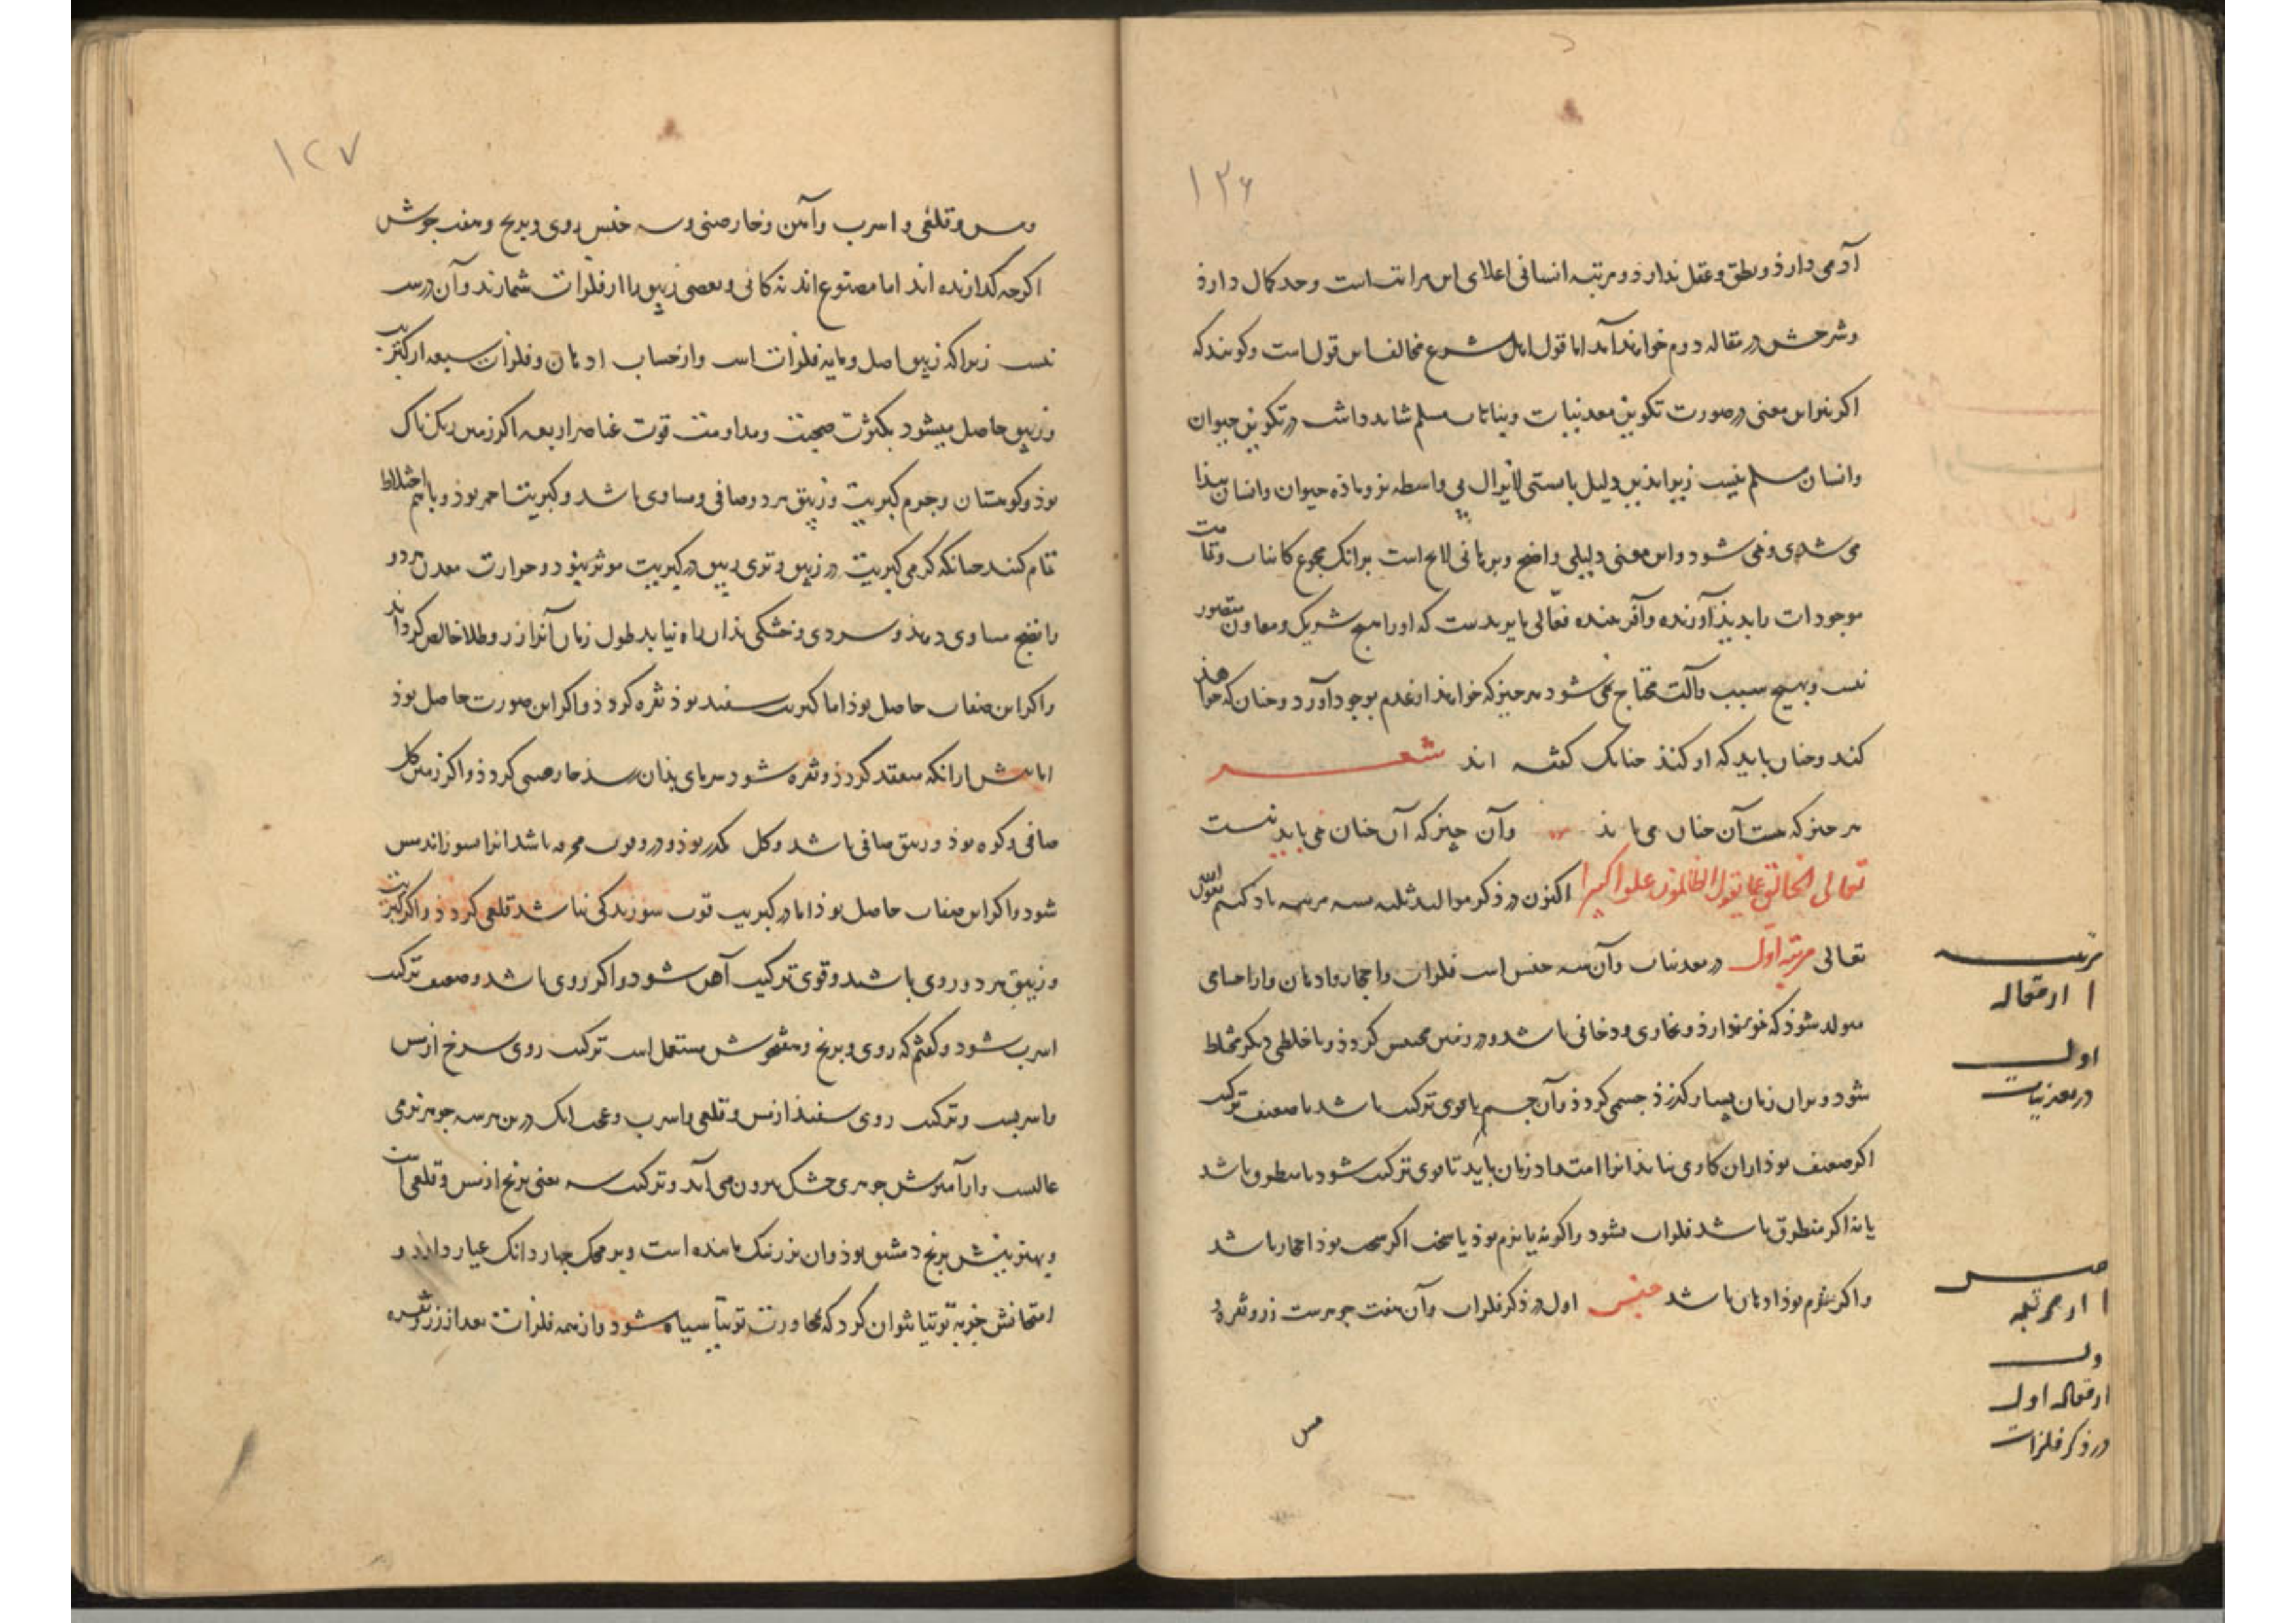 ۱۲۶
آدمی دارذ و نطق و عقل ندارذ و مرتبه انسانی اعلای این مراتب است و حد کمال دارذ
و شرحش در مقاله دوم خواهد آمد اما قول اهل شرع مخالف این قول است و کویند که
اکر نیز این معنی در صورت تکوین معدنیات و نباتات مسلم شاید داشت در تکوین حیوان
و انسان مسلم نیست زیرا بذین دلیل بایستی لایزال بی واسطه نر و ماذه حیوان و انسان پیذا
می شدی و نمی شود و این معنی دلیلی واضح و برهانی لایح است برانک مجموع کاینات و تمامت
موجودات را پدیذ آورنده و آفریننده فعالی مایریدست که او را هیچ شریک و معاون متصور
نیست و بهیچ سبب و آلت محتاج نمی شود هر چیز که خواهد از عدم بوجود آورد و چنان که خواهذ
کند و چنان باید که او کنذ چنانک کفته اند شعر
هر چیز که هست آن چنان می باید وآن چیز که آن چنان نمی باید نیست
تعالی الخالق عما یقول الظالمون علوا کبیرا اکنون در ذکر موالید ثلثه سه مرتبه یاذ کنیم بعون الله
تعالی مرتبه اول در معدنیات وآن سه جنس است فلزات و احجار و ادهان و از اجسامی
متولد شوذ که نمو ندارذ و بخاری و دخانی باشد و در زمین محتبس کردذ و با خلطی دیکر مختلط
شود و بران زمان بسیار کذرذ جسمی کردذ وآن جسم یا قوی ترکیب باشد یا ضعیف ترکیب
اکر ضعیف بوذ ازان کاری نیایذ انرا امتداد زمان باید تا قوی ترکیب شود یا منطرق باشد
یا نه اکر منطرق باشد فلزات شود و اکر نه یا نرم بوذ یا سخت اکر سخت بوذ احجار باشد
و اکر نرم بوذ ادهان باشد جنس اول در ذکر فلزات وآن هفت جوهرست زر و نقره و
مس
مرتبه
ا از مقاله
اول
در معدنیات
جنس
ا از مرتبه
ول
از مقاله اول
در ذکر فلزات
۱۲۷
و مس و قلعی و اسرب و آهن و خارصینی و سه جنس روی و برنج و هفت جوش
اکرچه کدازنده اند اما مصنوع اند نه کانی و بعضی زیبق را از فلزات شمارند وآن درست
نیست زیرا که زیبق اصل و مایه فلزات است و از حساب ادهان و فلزات سبعه از کبریت
و زیبق حاصل میشود بکثرت صحبت و مداومت قوت عناصر اربعه اکر زمین ریک ناک
بوذ و کوهستان و جرم کبریت و زیبق هر دو صافی و مساوی باشد و کبریت احمر بوذ و باهم اختلاط
تمام کنند چنانکه کرمی کبریت در زیبق و تری زیبق در کبریت موثر بوذ و حرارت معدن هر دو
را نضج مساوی دهذ و سردی و خشکی بذان راه نیابد بطول زمان آنرا زر و طلا خالص کرداند
و اکر این صفات حاصل بوذ اما کبریت سفید بوذ نقره کردذ و اکر این صورت حاصل بوذ
اما پیش ازانکه منعقد کردذ و نقره شود سرمای بذان رسذ خارصینی کردذ و اکر زمین کل
صافی و کوه بوذ و زیبق صافی باشد و کل مکدر بوذ و درو قوت محرقه باشد انرا بسوزاند مس
شود و اکر این صفات حاصل بوذ اما در کبریت قوت سوزندکی نباشد قلعی کردذ و اکر کبریت
و زیبق هر دو روی باشد و قوی ترکیب آهن شود و اکر روی باشد و ضعیف ترکیب
اسرب شود و کفتم که روی و برنج و هفتجوش مستعمل است ترکیب روی سرخ از مس
و اسربست و ترکیب روی سفیذ از مس و قلعی و اسرب و عجب انک درین هر سه جوهر نرمی
غالبست و از آمیزش جوهری خشک بیرون می آید و ترکیب سه یعنی برنج از مس و قلعی است
و بهترینش برنج دمشقی بوذ وان بزر نیک ماننده است و بر محک چهار دانک عیار دارد و
امتحانش جز به توتیا نتوان کرد که مجاورت توتیا سیاه شود و از همه فلزات بعد از زر و نقره